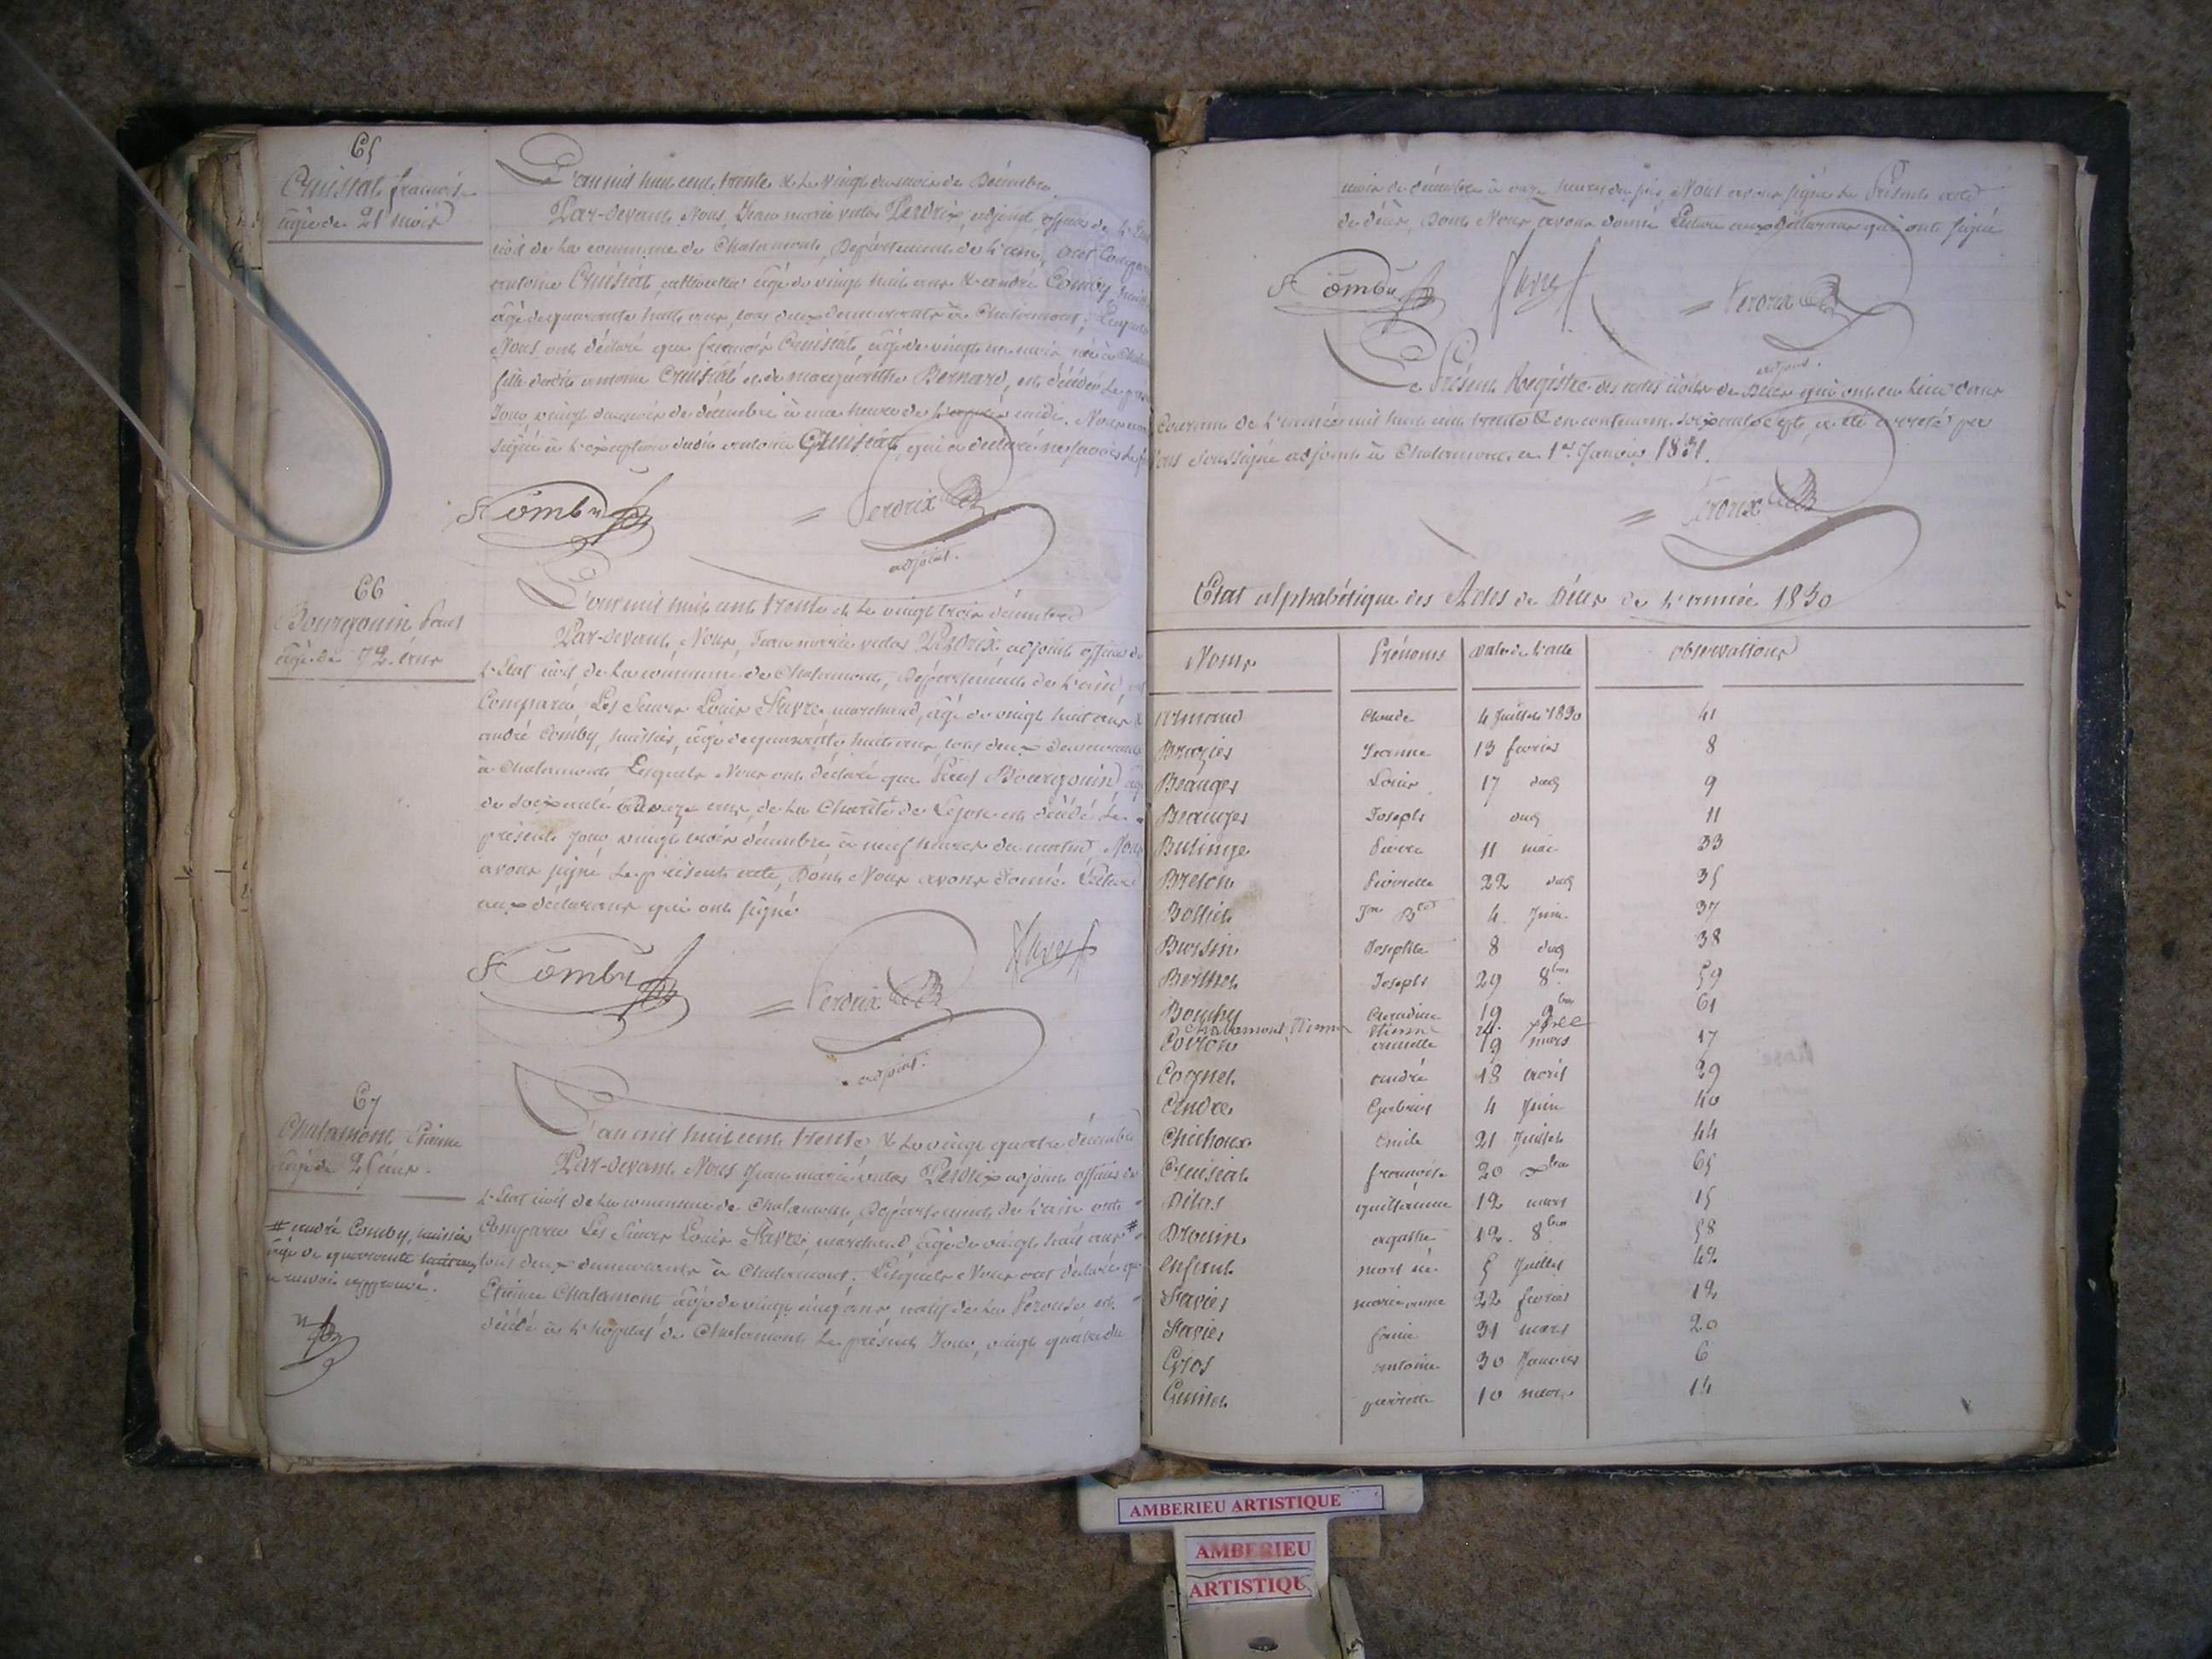 65
Cruisiat françoise
âgée de 21 mois
L'an mil huit cent trente & le vingt du mois de Décembre
Par-devant Nous, Jean marie victor Perdrix, adjoint, officier de l'Etat
civil de la commune de Chalamont, Département de l'ain, ont comparu
antoine Cruisiat, cultivateur âgé de vingt huit ans & andré Comby, huissier
âgé de quarante huit ans, tous deux demeurants à Chalamont; Lesquels
Nous ont déclaré que françoise Cruisiat, âgée de vingt un mois, née à
fille dudit antoine Cruisiat et de marguerithe Bernard, est décédée le présent
Jour vingt du mois de décembre à une heure de l'après midi. Nous avons
signé à l'exception dudit antoine Cruisiat, qui a déclaré ne savoir le
A Comby
= Perdrix
adjoint.
66
Bourgouin Paul
âgé de 72 ans
L'an mil huit cent trente et le vingt trois décembre
Par-devant Nous, Jean marie victor Perdrix adjoint officier de
l'Etat civil de la commune de Chalamont, Département de l'ain, ont
Comparu Les Sieurs Louis Favre, marchand, âgé de vingt huit ans &
andré Comby, huissier, âgé de quarante huit ans, tous deux demeurants
à Chalamont Lesquels Nous ont déclaré que Paul Bourgouin, âgé
de soixante douze ans, de la Charité de est décédé le
présent jour vingt trois décembre à neuf heures du matin. Nous
avons signé le présent acte, Dont Nous avons donné Lecture
aux déclarans qui ont signé
A Comby
= Perdrix
Favre
adjoint.
67
Chalamont Etienne
âgé de 25 ans.
L'an mil huit cent trente & le vingt quatre décembre
Par-devant Nous Jean marie victor Perdrix adjoint officier de
l'Etat civil de la commune de Chalamont, Département de l'ain ont
# andré Comby, huissier
âgé de quarante huit ans
renvoi approuvé.
Comparu Les Sieurs Louis Favre, marchand, âgé de vingt huit ans #
tous deux demeurants à Chalamont. Lesquels Nous ont déclaré que
Etienne Chalamont âgé de vingt cinq ans, natif de La Perouse est
décédé à l'hopital de Chalamont le présent Jour, vingt quatre du
mois de décembre à onze heures du soir. Nous avons signé le Présent acte
de décès, Dont Nous avons donné Lecture aux déclarans qui ont signé
A Comby
Favre
= Perdrix
adjoint.
Le Présent Registre des actes civils de Décès qui ont eu lieu dans
Courant de l'année mil huit cent trente & en contenant soixante sept, a été arreté par
Nous soussigné adjoint à Chalamont ce 1er Janvier 1831.
= Perdrix
Etat alphabétique des Actes de Décès de l'année 1830
Noms Prénoms Date de l'acte observations
armand Claude 4 Juillet 1830 41
Brazier Jeanne 13 fevrier 8
Beauger Louis 17 dud 9
Beauger Joseph dud 11
Bulinge Pierre 11 mai 33
Breton Pierrette 22 dud 35
Bollich Jn Bte 4 Juin 37
Bussin Josephte 8 dud 38
Berthet Joseph 29 8bre 59
Bouchy Claudine 19 9bre 61
Chalamont Etienne Etienne 24 Xbre
Corron annette 19 mars 17
Cognet andré 18 avril 29
Cendre Gabriel 4 Juin 40
Chichoux Emile 21 Juillet 44
Cruisiat françoise 20 Xbre 65
Dilas guillaume 12 mars 15
Drouin agathe 12 8bre 58
Enfant mort né 5 Juillet 42
Favier marie anne 22 fevrier 12
Favier fanie 31 mars 20
Gros antoine 30 Janvier 6
Guinet pierrette 10 mars 14
AMBERIEU ARTISTIQUE
AMBERIEU
ARTISTIQU